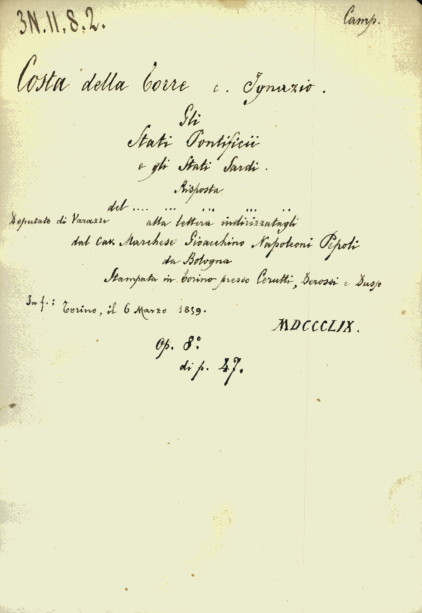 3N.11.8.2.
Camp.
Costa della Torre c. Ignazio.
Gli
Stati Pontificii
e gli Stati Sardi.
Risposta
del .... ... ... ... ..
Deputato di Varazze alla lettera indirizzatagli
dal Cav. Marchese Gioacchino Napoleoni Pepoli
da Bologna
Stampata in Torino presso Cerutti, Derossi e Dusso
In f.: Torino, il 6 Marzo 1859.
MDCCCLIX.
Op. 8°
di p. 47.